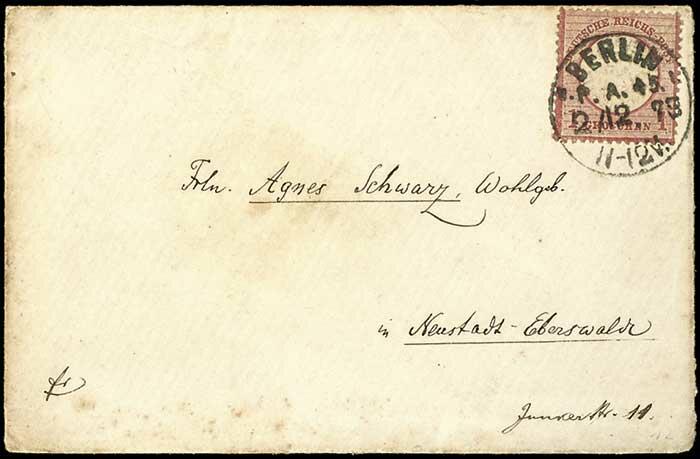 DEUTSCHE REICHS-POST
BERLIN
P. A. 45.
2/12 73
1 GROSCHEN 1
11-12V.
Frln. Agnes Schwarz, Wohlgeb.
in Neustadt-Eberswalde
fr
Junkerstr. 11.